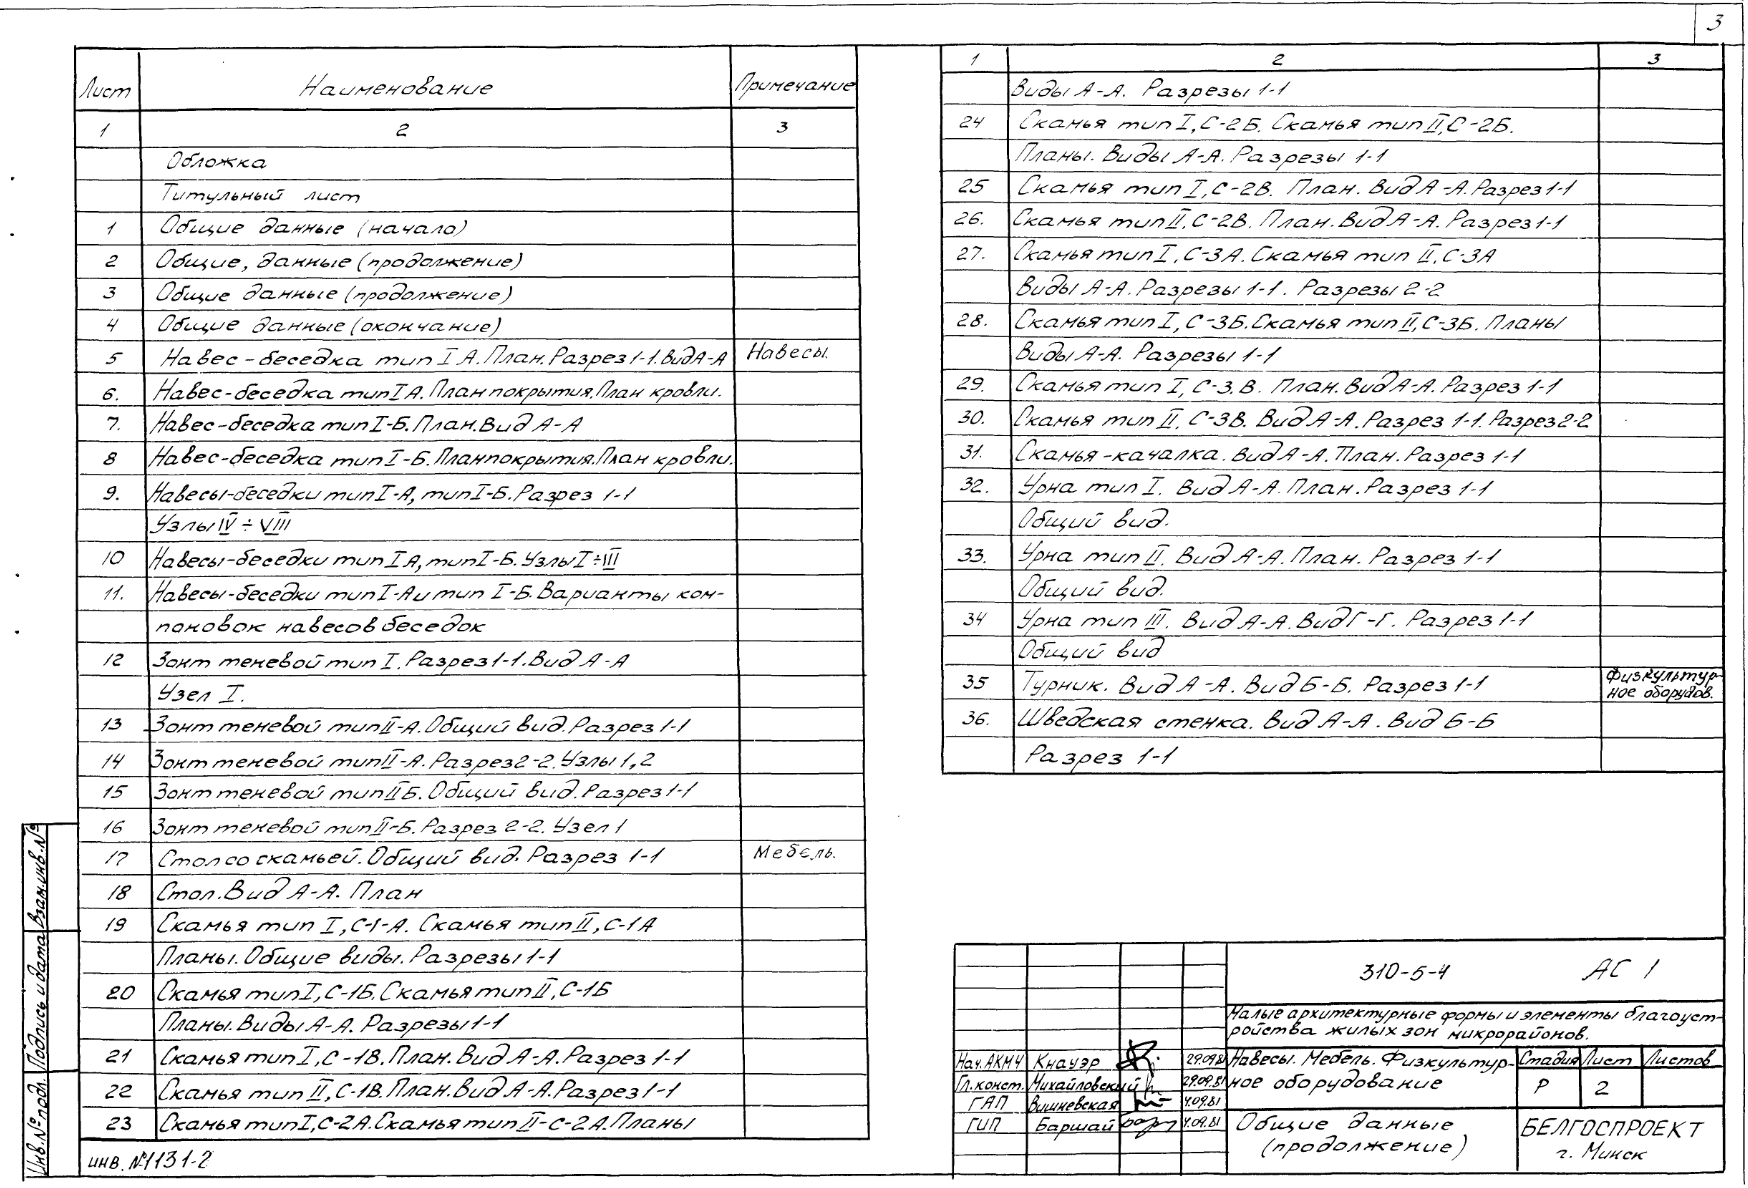 3
Лист Наименование Примечание
1 2 3
Обложка
Титульный лист
1 Общие данные (начало)
2 Общие, данные (продолжение)
3 Общие данные (продолжение)
4 Общие данные (окончание)
5 Навес-беседка тип I А. План. Разрез 1-1. Вид А-А Навесы.
6. Навес-беседка тип I А. План покрытия. План кровли.
7. Навес-беседка тип I-Б. План. Вид А-А
8 Навес-беседка тип I-Б. План покрытия. План кровли.
9. Навесы-беседки тип I-А, тип I-Б. Разрез 1-1
Узлы IV ÷ VIII
10 Навесы-беседки тип I А, тип I-Б. Узлы I ÷ III
11. Навесы-беседки тип I-А и тип I-Б. Варианты ком-
поновок навесов беседок
12 Зонт теневой тип I. Разрез 1-1. Вид А-А
Узел I.
13 Зонт теневой тип II-А. Общий вид. Разрез 1-1
14 Зонт теневой тип II-А. Разрез 2-2. Узлы 1,2
15 Зонт теневой тип II Б. Общий вид. Разрез 1-1
16 Зонт теневой тип II-Б. Разрез 2-2. Узел 1
17 Стол со скамьей. Общий вид. Разрез 1-1 Мебель.
18 Стол. Вид А-А. План
19 Скамья тип I, С-1-А. Скамья тип II, С-1А
Планы. Общие виды. Разрезы 1-1
20 Скамья тип I, С-1Б. Скамья тип II, С-1Б
Планы. Виды А-А. Разрезы 1-1
21 Скамья тип I, С-1В. План. Вид А-А. Разрез 1-1
22 Скамья тип II, С-1В. План. Вид А-А. Разрез 1-1
23 Скамья тип I, С-2А. Скамья тип II-С-2А. Планы
1 2 3
Виды А-А. Разрезы 1-1
24 Скамья тип I, С-2Б. Скамья тип II, С-2Б.
Планы. Виды А-А. Разрезы 1-1
25 Скамья тип I, С-2В. План. Вид А-А. Разрез 1-1
26. Скамья тип II, С-2В. План. Вид А-А. Разрез 1-1
27. Скамья тип I, С-3А. Скамья тип II, С-3А
Виды А-А. Разрезы 1-1. Разрезы 2-2
28. Скамья тип I, С-3Б. Скамья тип II, С-3Б. Планы
Виды А-А. Разрезы 1-1
29. Скамья тип I, С-3.В. План. Вид А-А. Разрез 1-1
30. Скамья тип II, С-3В. Вид А-А. Разрез 1-1. Разрез 2-2
31. Скамья-качалка. Вид А-А. План. Разрез 1-1
32. Урна тип I. Вид А-А. План. Разрез 1-1
Общий вид.
33. Урна тип II. Вид А-А. План. Разрез 1-1
Общий вид.
34 Урна тип III. Вид А-А. Вид Г-Г. Разрез 1-1
Общий вид
35 Турник. Вид А-А. Вид Б-Б. Разрез 1-1 Физкультур-
ное оборудов.
36. Шведская стенка. Вид А-А. Вид Б-Б
Разрез 1-1
310-5-4 АС 1
Малые архитектурные формы и элементы благоуст-
ройства жилых зон микрорайонов.
Нач. АКМ4 Кнауэр 29.09.81
Гл. конст. Михайловский 29.09.81
ГАП Вишневская 4.09.81
ГИП Баршай 4.09.81
Навесы. Мебель. Физкультур-
ное оборудование
Стадия Лист Листов
Р 2
Общие данные
(продолжение)
БЕЛГОСПРОЕКТ
г. Минск
Инв. № подл. Подпись и дата Взам. инв. №
инв. №1131-2